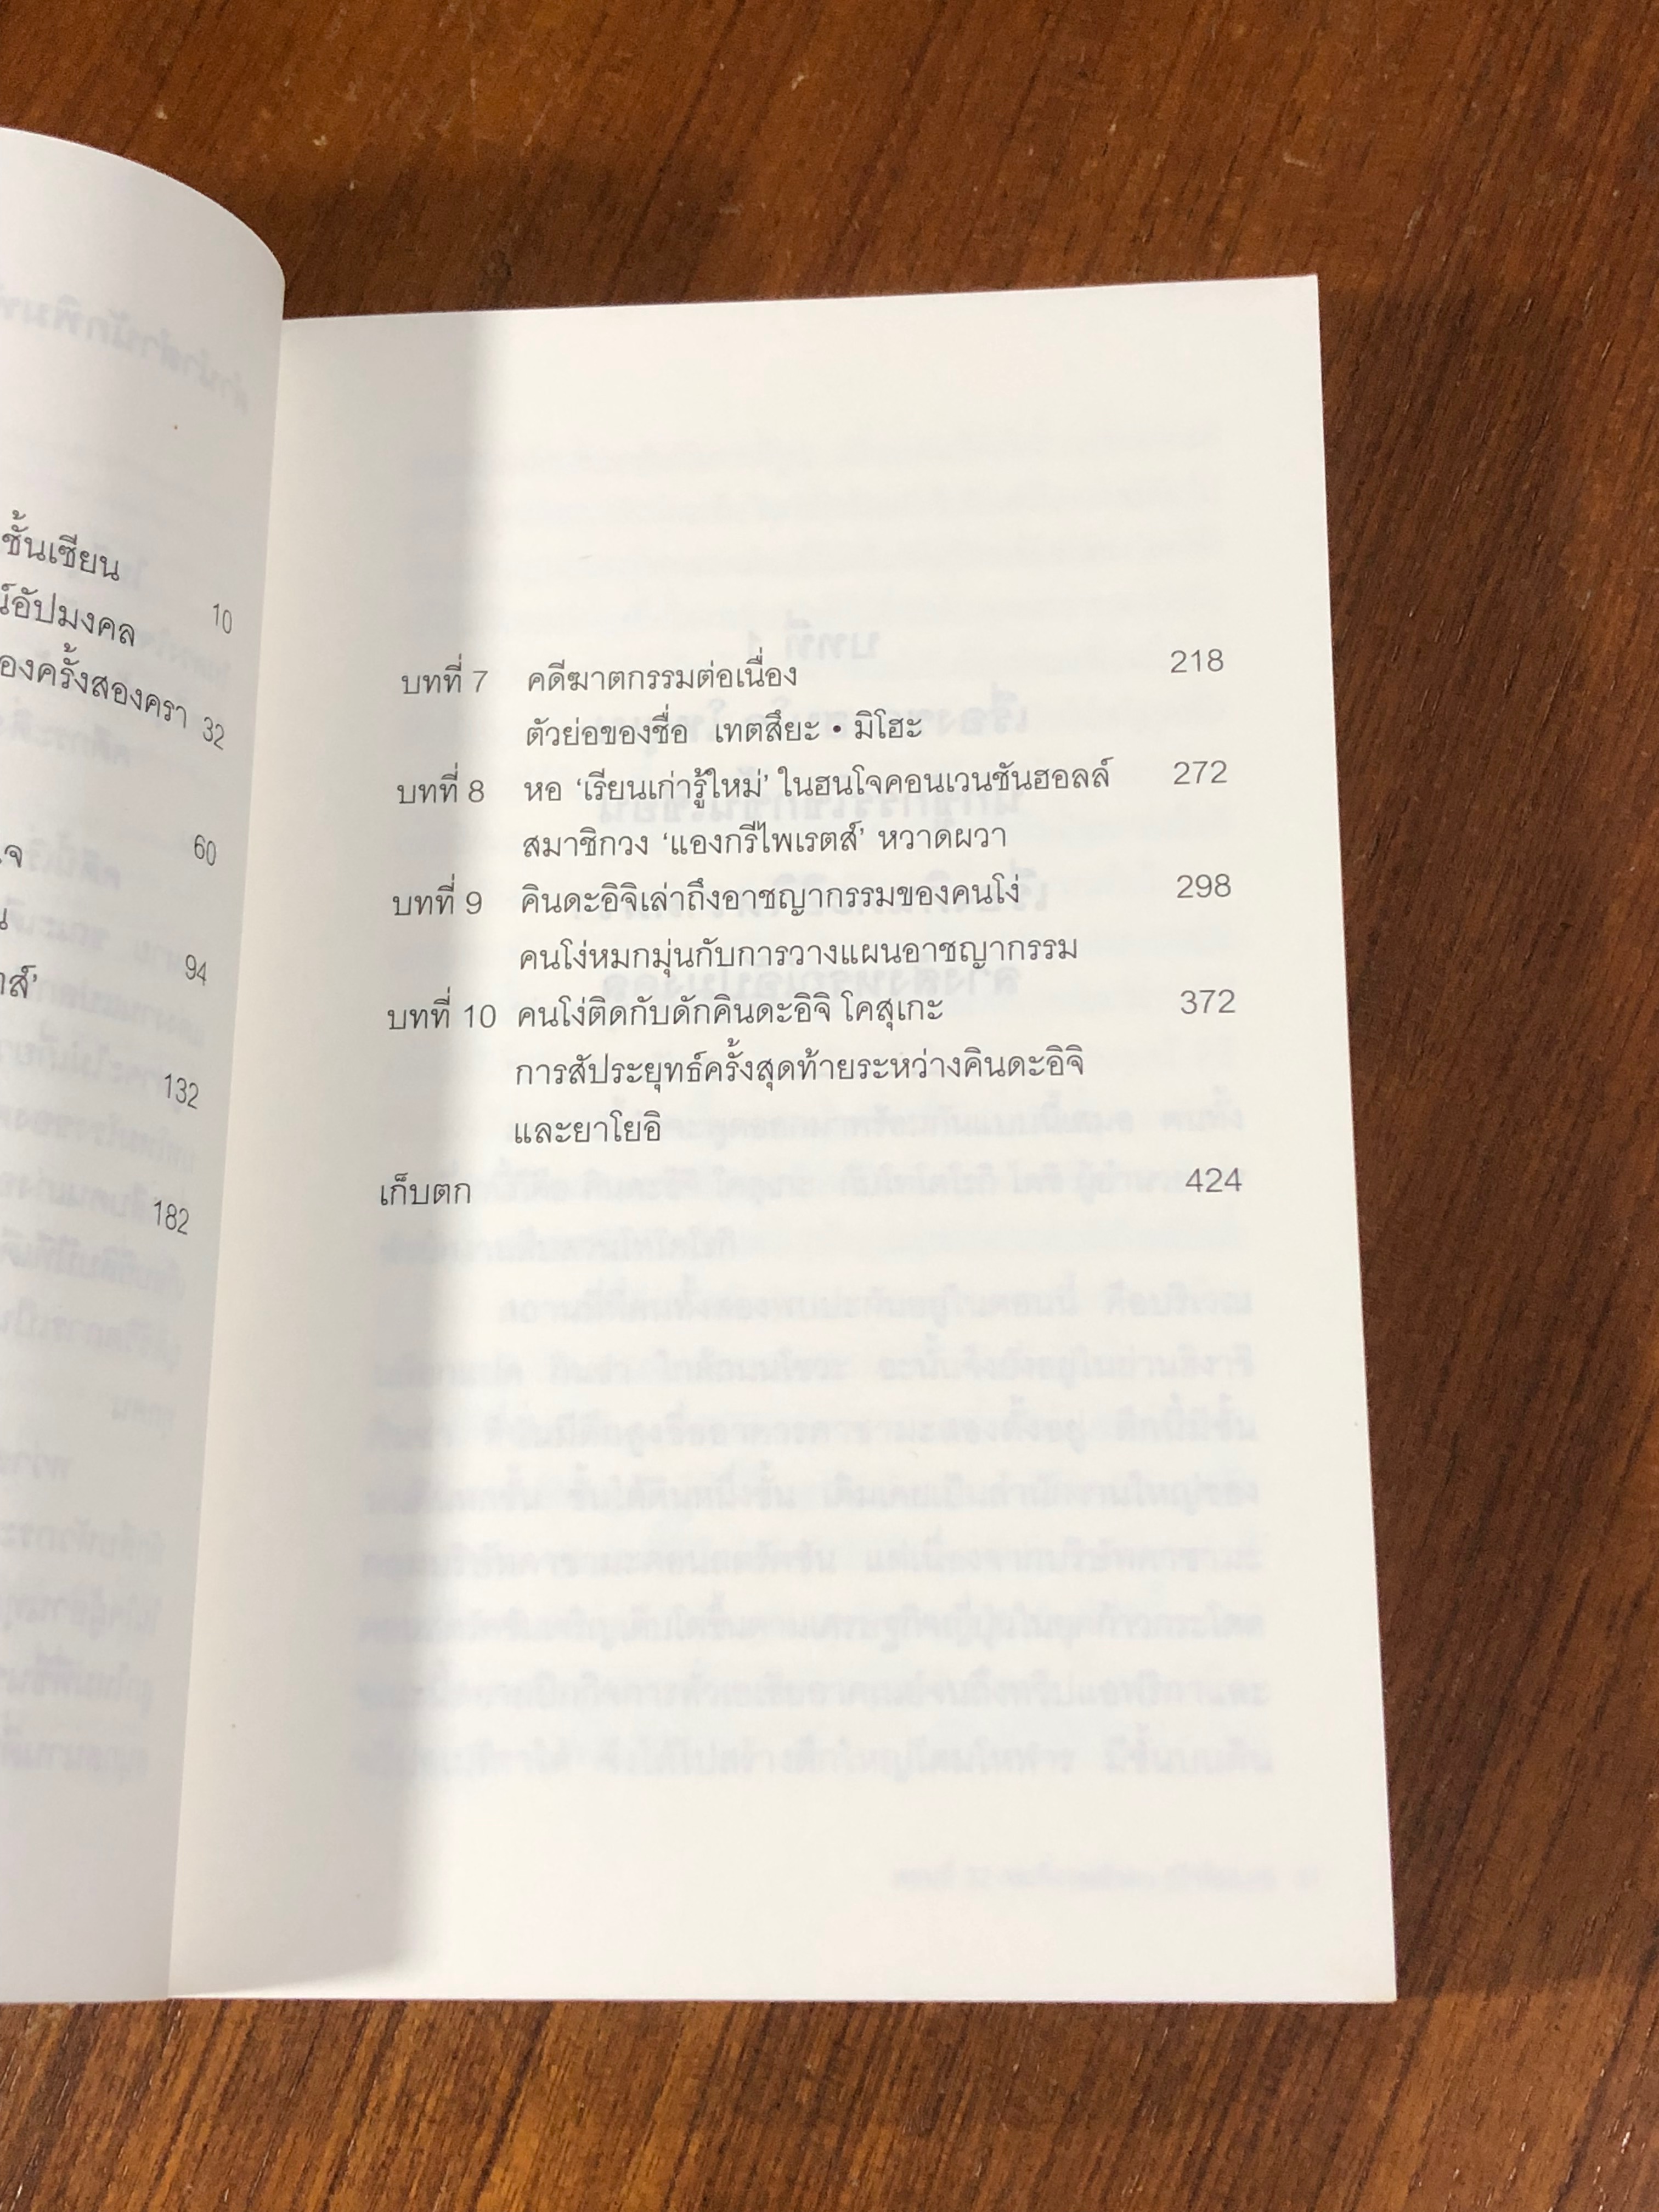 ชั้นเซียน
10
อัปมงคล
ครั้งสองครา 32
60
94
132
182
บทที่ 7 คดีฆาตกรรมต่อเนื่อง 218
ตัวย่อของชื่อ เทตสึยะ • มิโฮะ
บทที่ 8 หอ ‘เรียนเก่ารู้ใหม่’ ในฮนโจคอนเวนชันฮอลล์ 272
สมาชิกวง ‘แองกรีไพเรตส์’ หวาดผวา
บทที่ 9 คินดะอิจิเล่าถึงอาชญากรรมของคนโง่ 298
คนโง่หมกมุ่นกับการวางแผนอาชญากรรม
บทที่ 10 คนโง่ติดกับดักคินดะอิจิ โคสุเกะ 372
การสัประยุทธ์ครั้งสุดท้ายระหว่างคินดะอิจิ
และยาโยอิ
เก็บตก 424